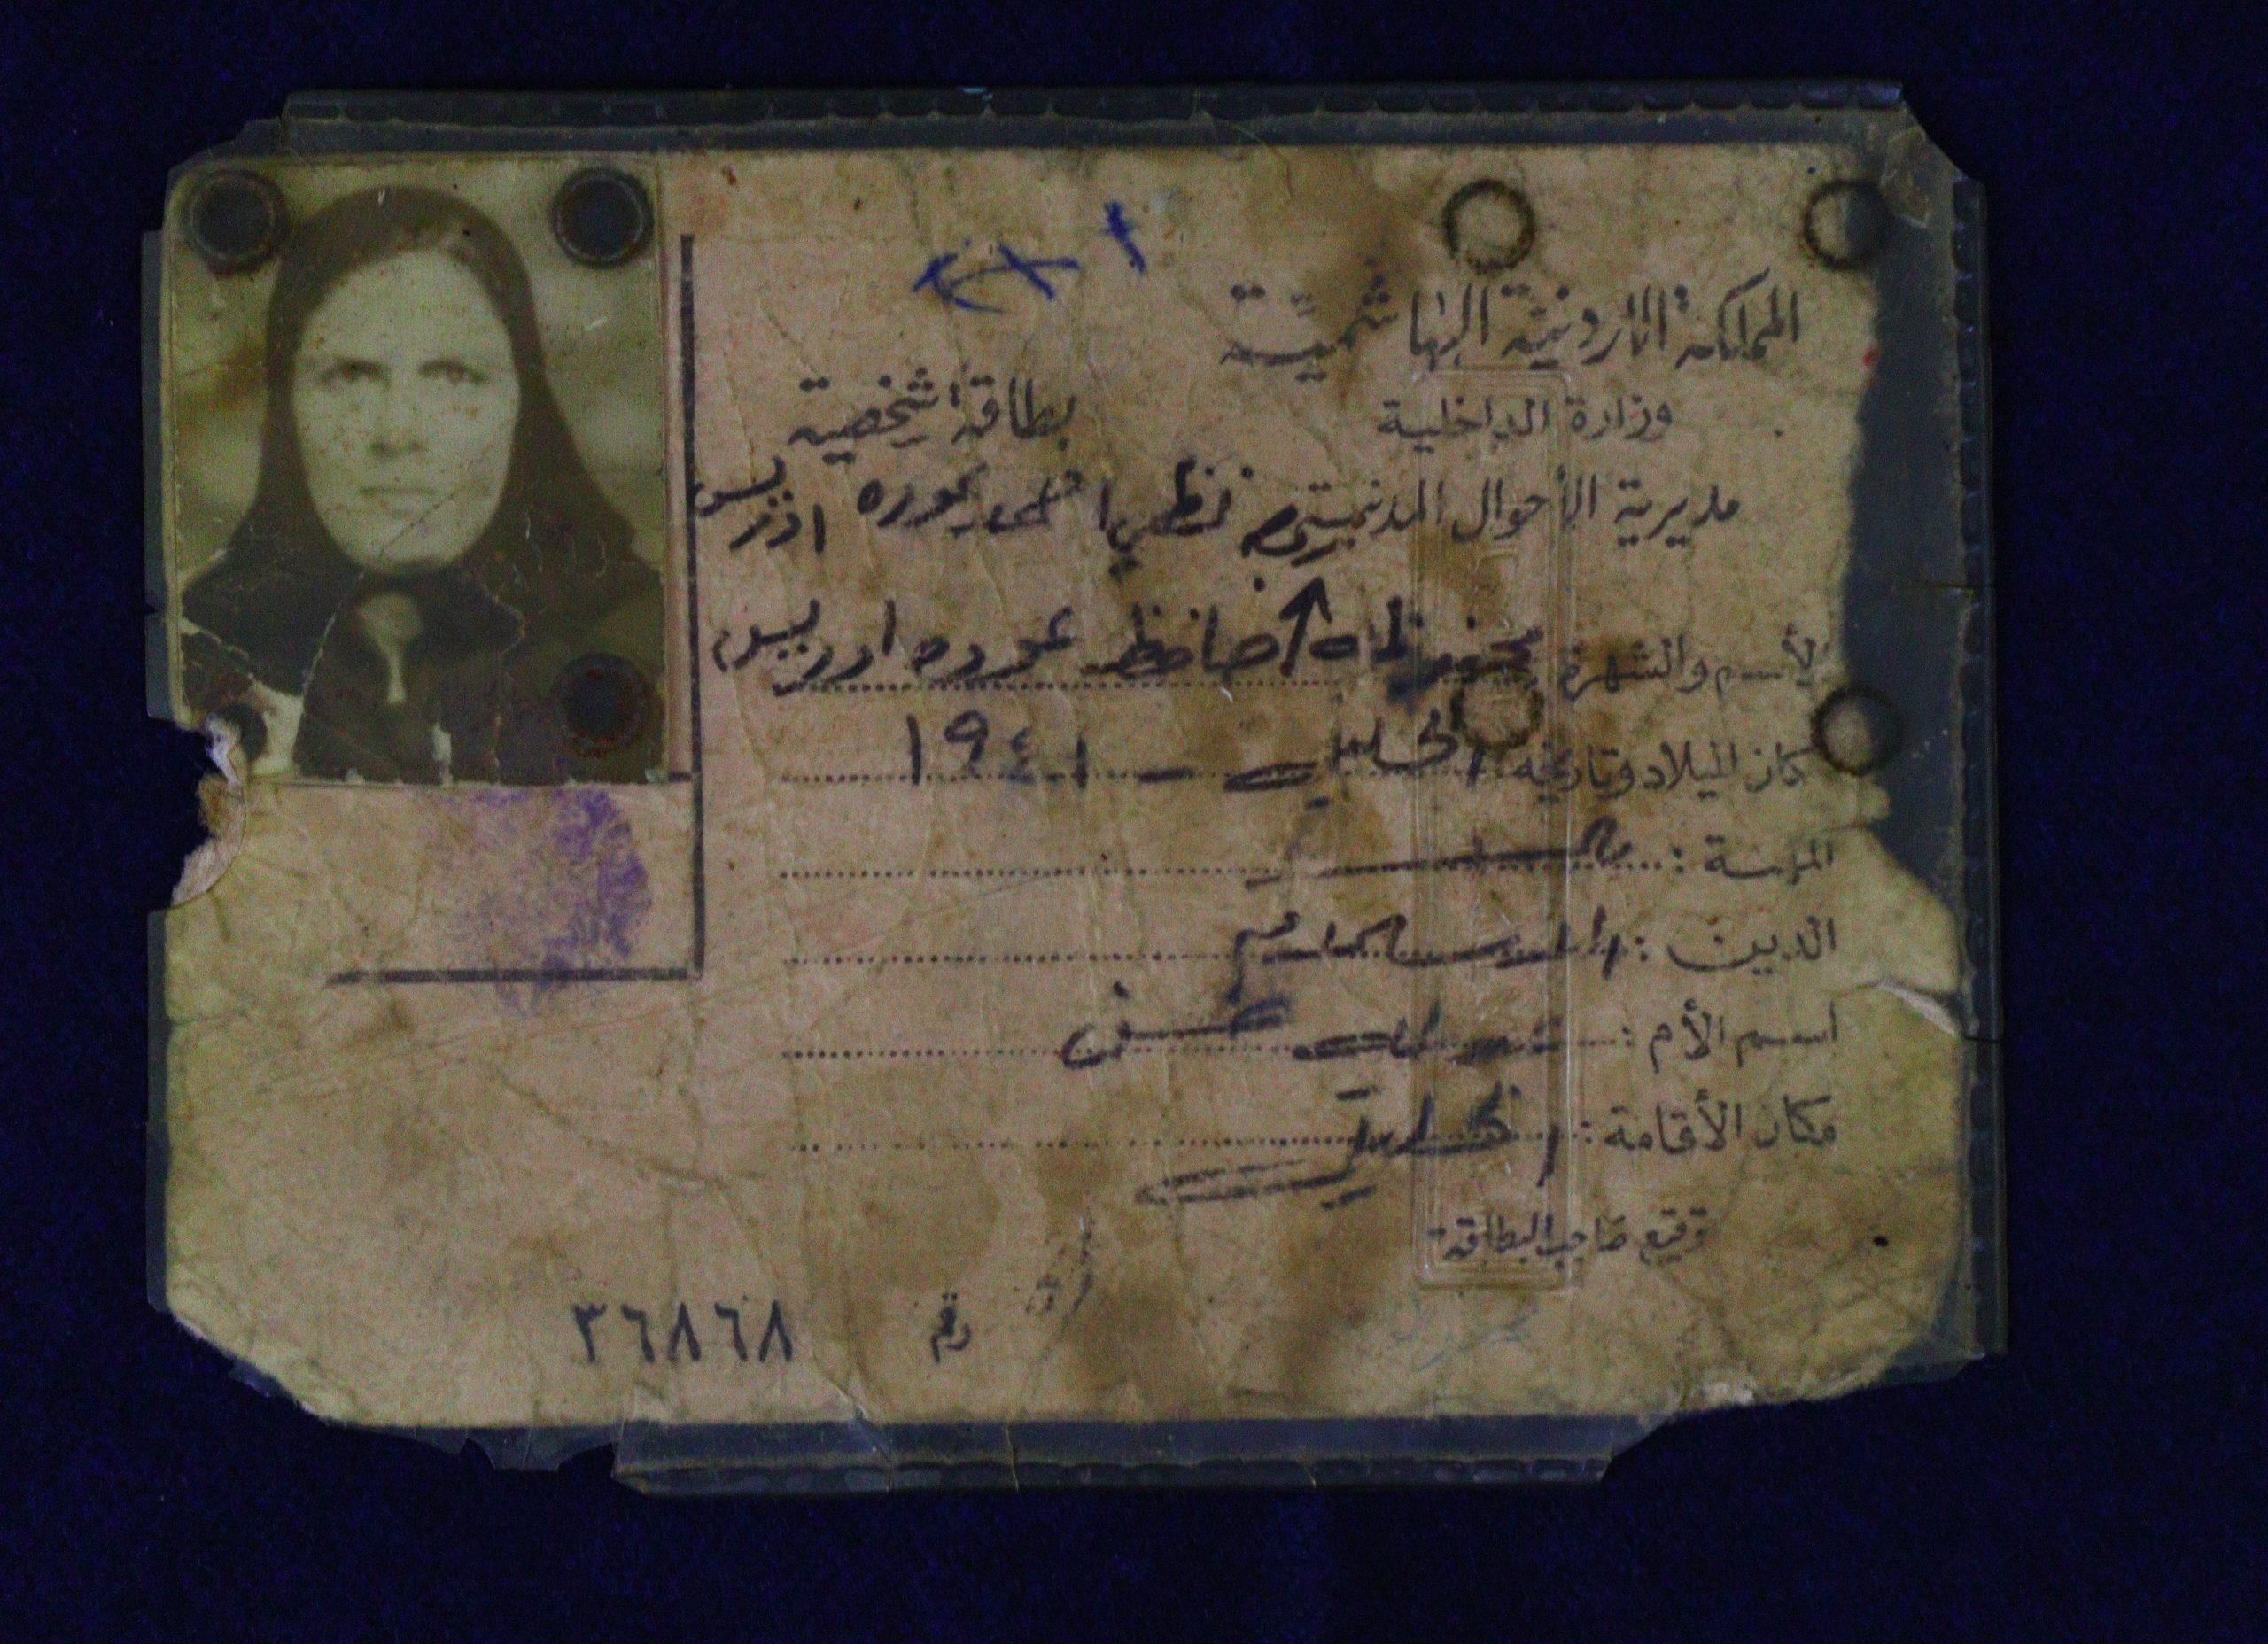 المملكة الاردنية الهاشمية
وزارة الداخلية
بطاقة شخصية
مديرية الأحوال المدنية نظمي احمد عوده ادريس
الأسم والشهرة محفوظه حافظ عوده ادريس
مكان الميلاد وتاريخه الخليل - ١٩٤١
المهنة :
الدين : الاسلام
اسم الأم : حسن
مكان الأقامة : الخليل
توقيع صاحب البطاقة
رقم ٣٦٨٦٨